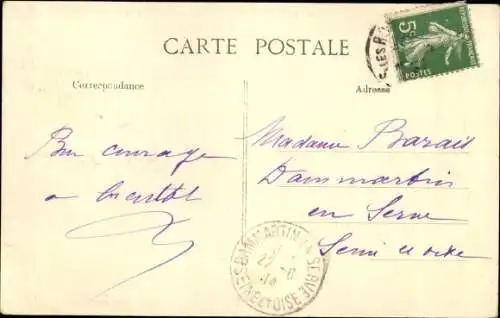 CARTE POSTALE
Correspondance
Adresse
5
POSTES
Bon courage
a bientôt
Madame Barait
Dammartin
en Serve
Seine et oise
DAMMARTIN EN SERVE
SEINE ET OISE